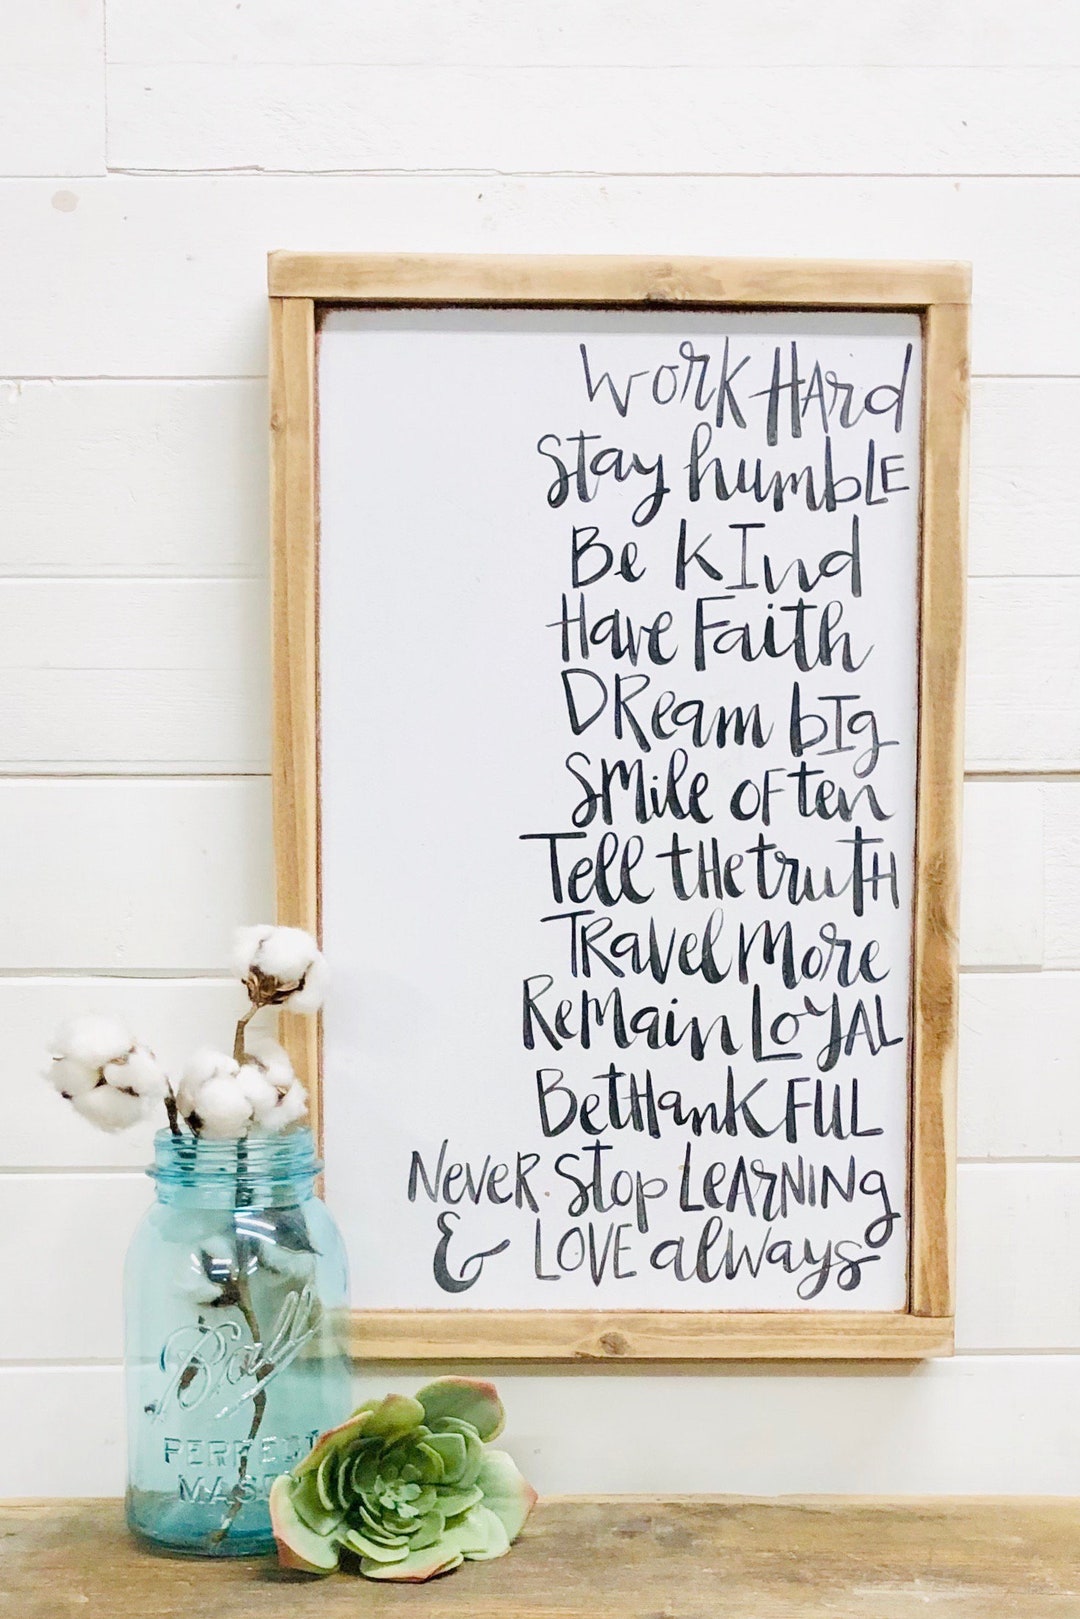 Work Hard
Stay humble
Be kind
Have Faith
Dream big
Smile often
Tell the truth
Travel More
Remain Loyal
Be thankful
Never stop Learning
& Love always
Ball
PERFECT
MASON